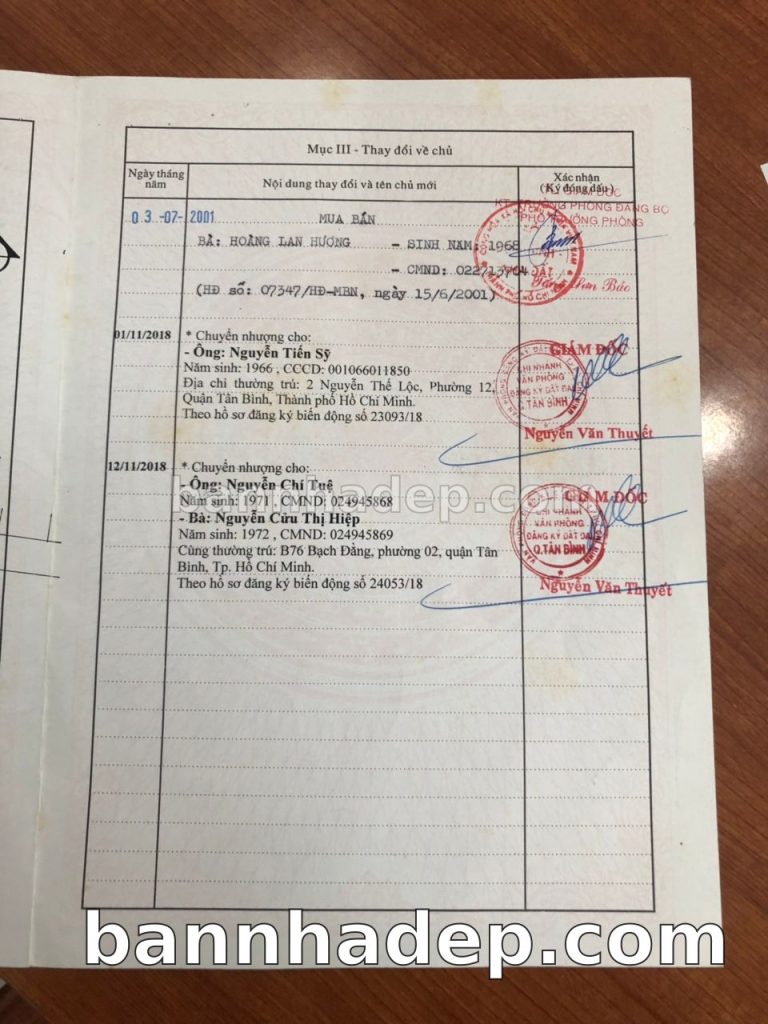 Mục III - Thay đổi về chủ
Ngày tháng năm
Nội dung thay đổi và tên chủ mới
Xác nhận
(Ký đóng dấu)
GIÁM ĐỐC
KT. TRƯỞNG PHÒNG ĐĂNG BỘ
PHÓ TRƯỞNG PHÒNG
03-07-2001
MUA BÁN
BÀ: HOÀNG LAN HƯƠNG - SINH NĂM: 1968
- CMND: 022713704
(HĐ số: 07347/HĐ-MBN, ngày 15/6/2001)
01/11/2018 * Chuyển nhượng cho:
- Ông: Nguyễn Tiến Sỹ
Năm sinh: 1966 , CCCD: 001066011850
Địa chỉ thường trú: 2 Nguyễn Thế Lộc, Phường 12,
Quận Tân Bình, Thành phố Hồ Chí Minh.
Theo hồ sơ đăng ký biến động số 23093/18
GIÁM ĐỐC
CHI NHÁNH
VĂN PHÒNG
ĐĂNG KÝ ĐẤT ĐAI
Q.TÂN BÌNH
Nguyễn Văn Thuyết
12/11/2018 * Chuyển nhượng cho:
- Ông: Nguyễn Chí Tuệ
Năm sinh: 1971 , CMND: 024945868
- Bà: Nguyễn Cửu Thị Hiệp
Năm sinh: 1972 , CMND: 024945869
Cùng thường trú: B76 Bạch Đằng, phường 02, quận Tân
Bình, Tp. Hồ Chí Minh.
Theo hồ sơ đăng ký biến động số 24053/18
GIÁM ĐỐC
CHI NHÁNH
VĂN PHÒNG
ĐĂNG KÝ ĐẤT ĐAI
Q.TÂN BÌNH
Nguyễn Văn Thuyết
bannhadep.com
bannhadep.com